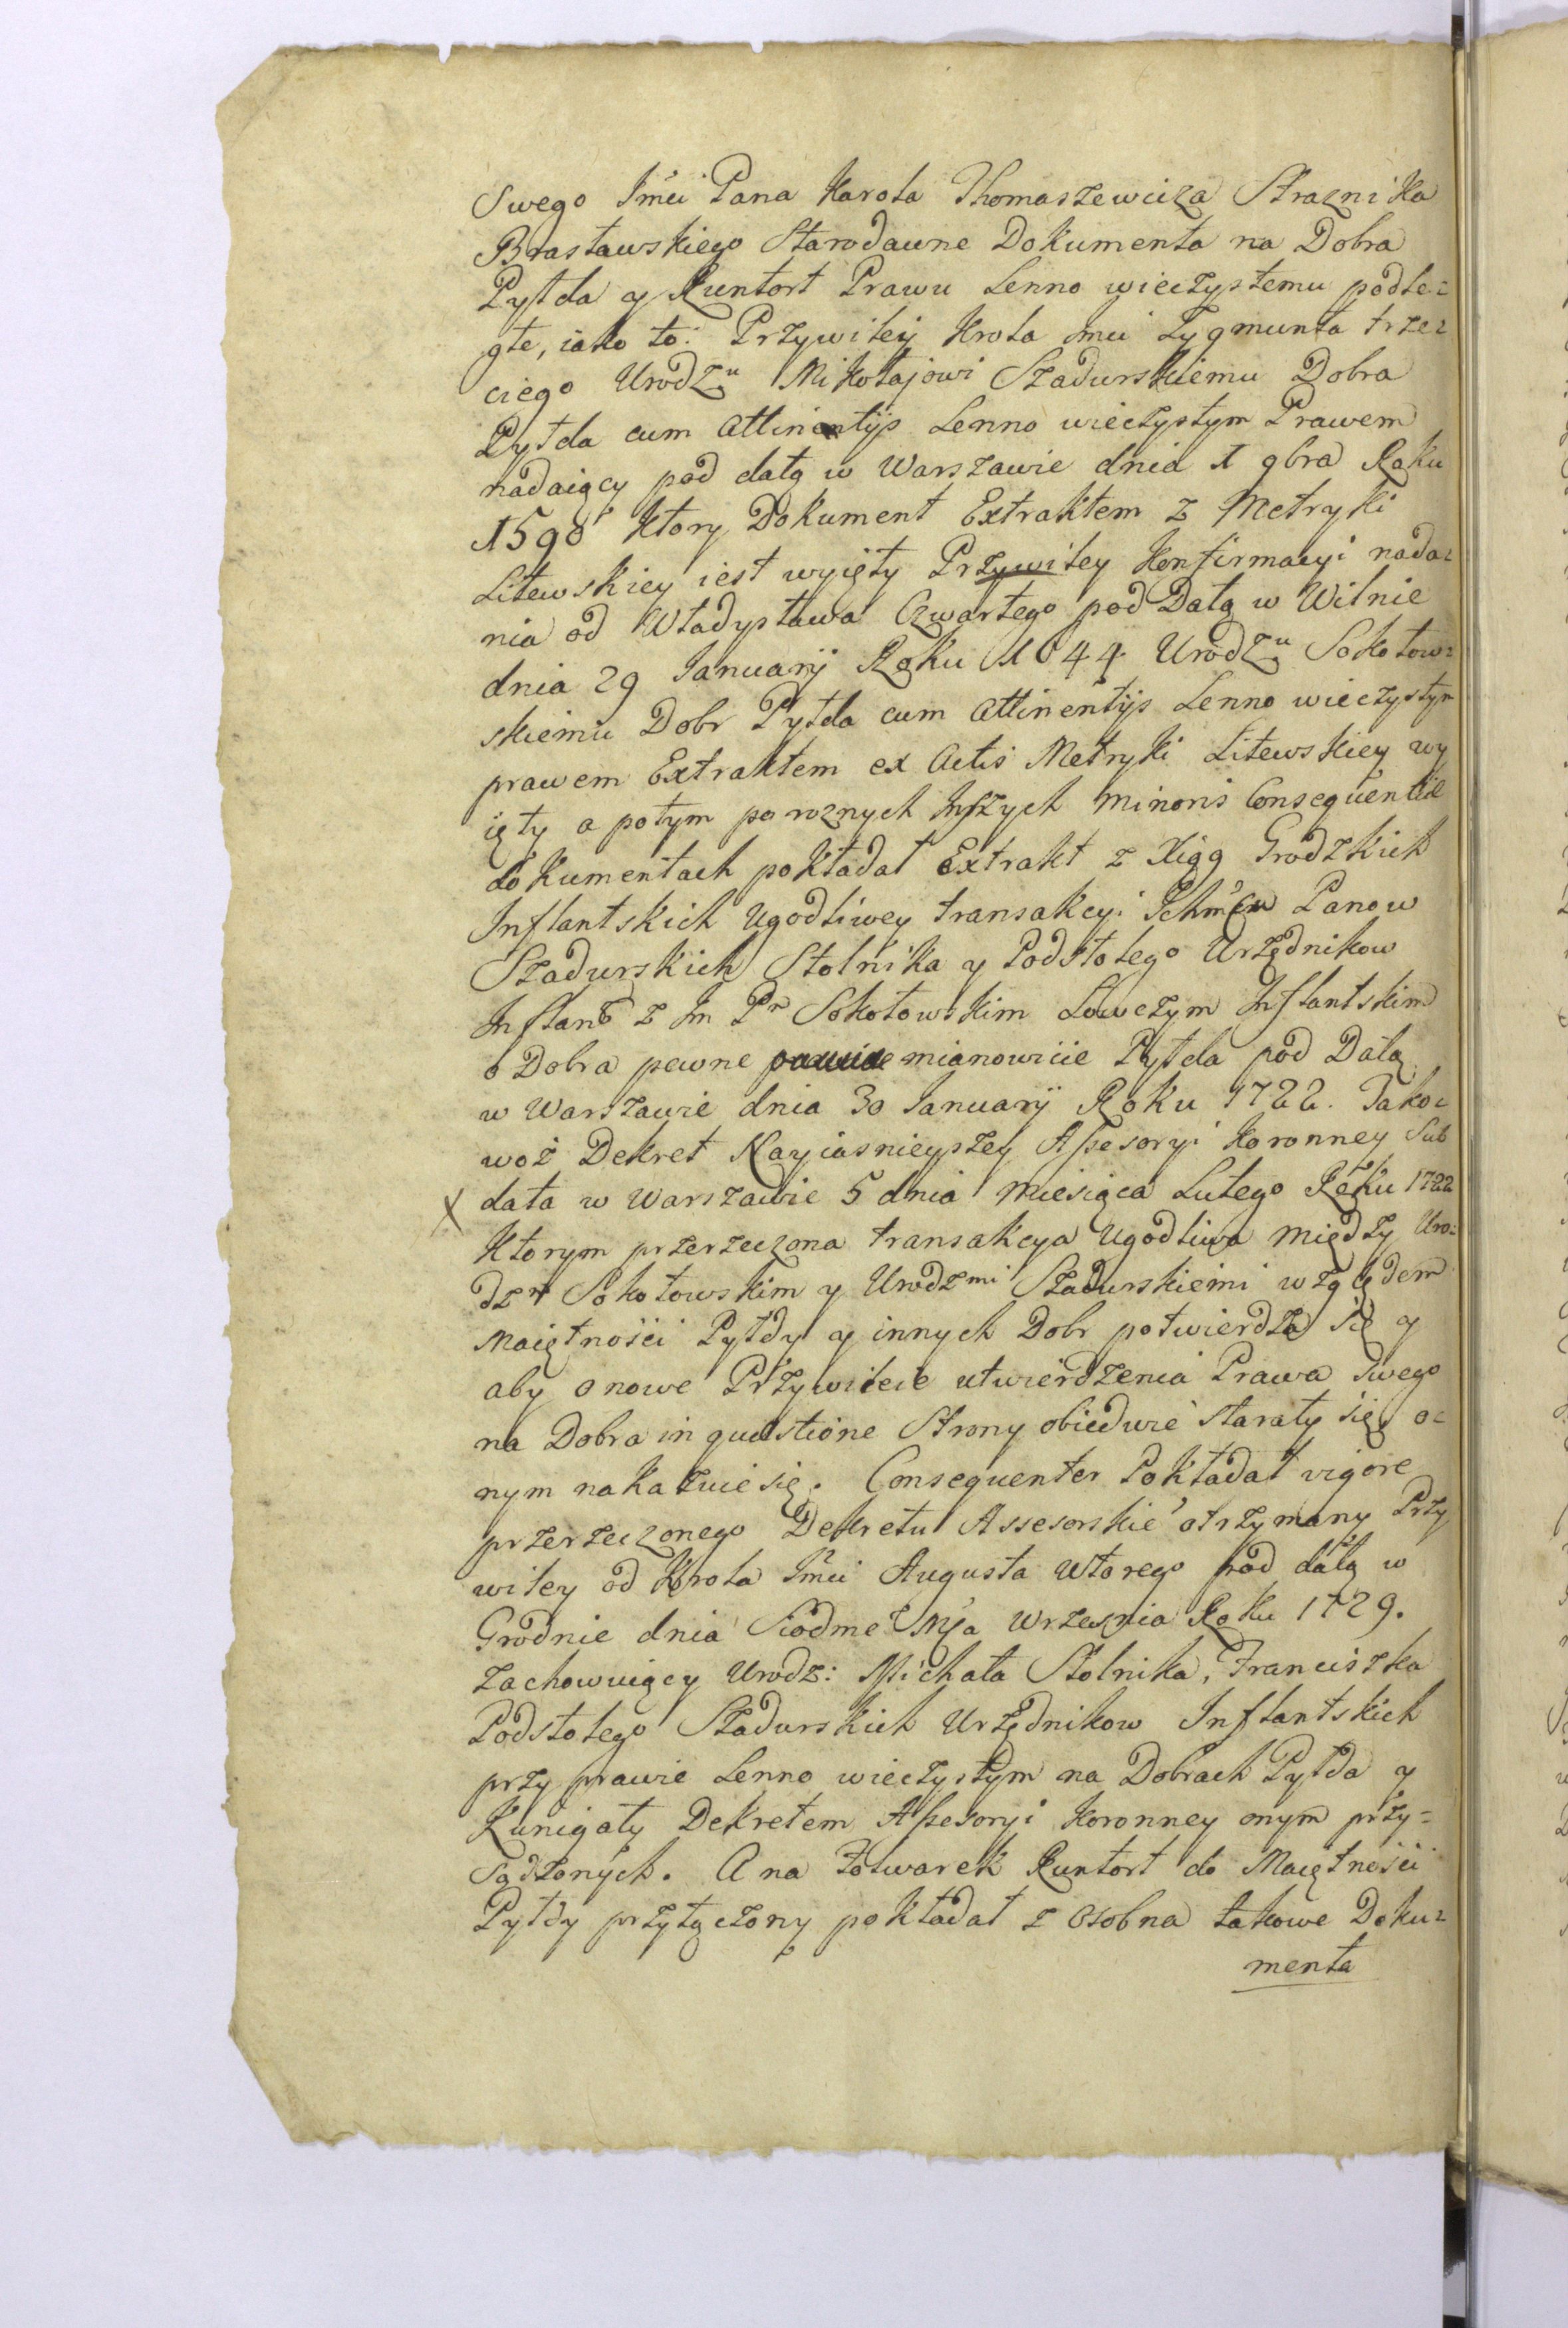 Swego Jmći Pana Karola Thomaszewicza Straznika
Brasławskiego Starodawne Dokumenta na Dobra
Pyłda y Runtort Prawu Lenno wieczystemu podle=
głe, iako to: Przywiley Krola Jmći Zygmunta trze=
ciego Urodzu Mikołajowi Szadurskiemu Dobra
Pyłda cum Attinentijs Lenno wieczystym Prawem
nadaiący pod datą w Warszawie dnia 1 9bra Roku
1598 ktory Dokument Extraktem z Metryki
Litewskiey iest wyięty Przywiley Konfirmacyi nada=
nia od Władysława Czwartego pod Datą w Wilnie
dnia 29 Januarij Roku 1644 Urodzu Sokołow=
skiemu Dobr Pyłda cum Attinentijs Lenno wieczystym
prawem Extraktem ex Actis Metryki Litewskiey wy
ięty a potym po roznych Inszych minoris Consequentiæ
dokumentach pokładał Extrakt z Xiąg Grodzkich
Inflantskich Ugodliwey transakcyi Ichmćw Panow
Szadurskich Stolnika y Podstolego Urzędnikow
Inflant z Im Pn Sokołowskim Łowczym Inflantskim
o Dobra pewne mianowicie Pyłda pod Datą
w Warszawie dnia 30 Januarij Roku 1722. Jako=
woż Dekret Nayiasnieyszey Assesoryi Koronney Sub
x data w Warszawie 5 dnia miesiąca Lutego Roku 1722
Ktorym przerzeczona transakcya Ugodliwa między Uro=
dzm Sokołowskim y Urodzmi Szadurskiemi względem
Maiętności Pyłdy y innych Dobr potwierdza się y
aby o nowe Przywileie utwierdzenia Prawa swego
na Dobra in quæstione Strony obiedwie starały się o=
nym nakazuie się. Consequenter Pokładał vigore
przerzeczonego Dekretu Assesorskie otrzymany Przy
wiley od Krola Jmći Augusta Wtorego pod datą w
Grodnie dnia Siodme Mja Wrzesnia Roku 1729.
zachowuiący Urodz: Michała Stolnika, Franciszka
Podstolego Szadurskich Urzędnikow Inflantskich
przy prawie Lenno wieczystym na Dobrach Pyłda y
Kunigały Dekretem Assesoryi Koronney onym przy=
sądzonych. A na Folwarek Runtort do Maiętności
Pyłdy przyłączony pokładał z osobna takowe Doku=
menta